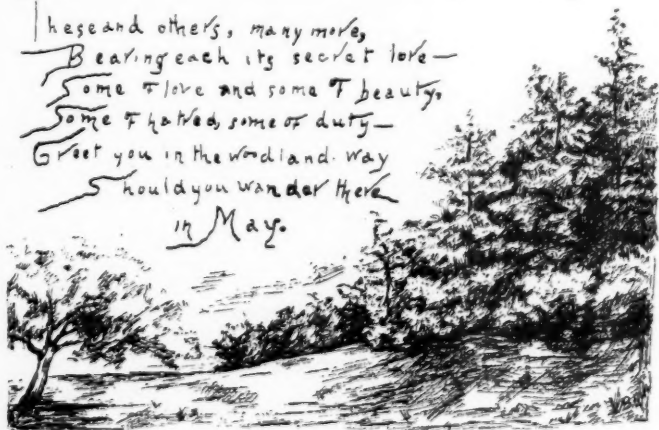 These and others, many more,
Bearing each its secret lore—
Some of love and some of beauty,
Some of hatred, some of duty—
Greet you in the woodland way
Should you wander there
in May.